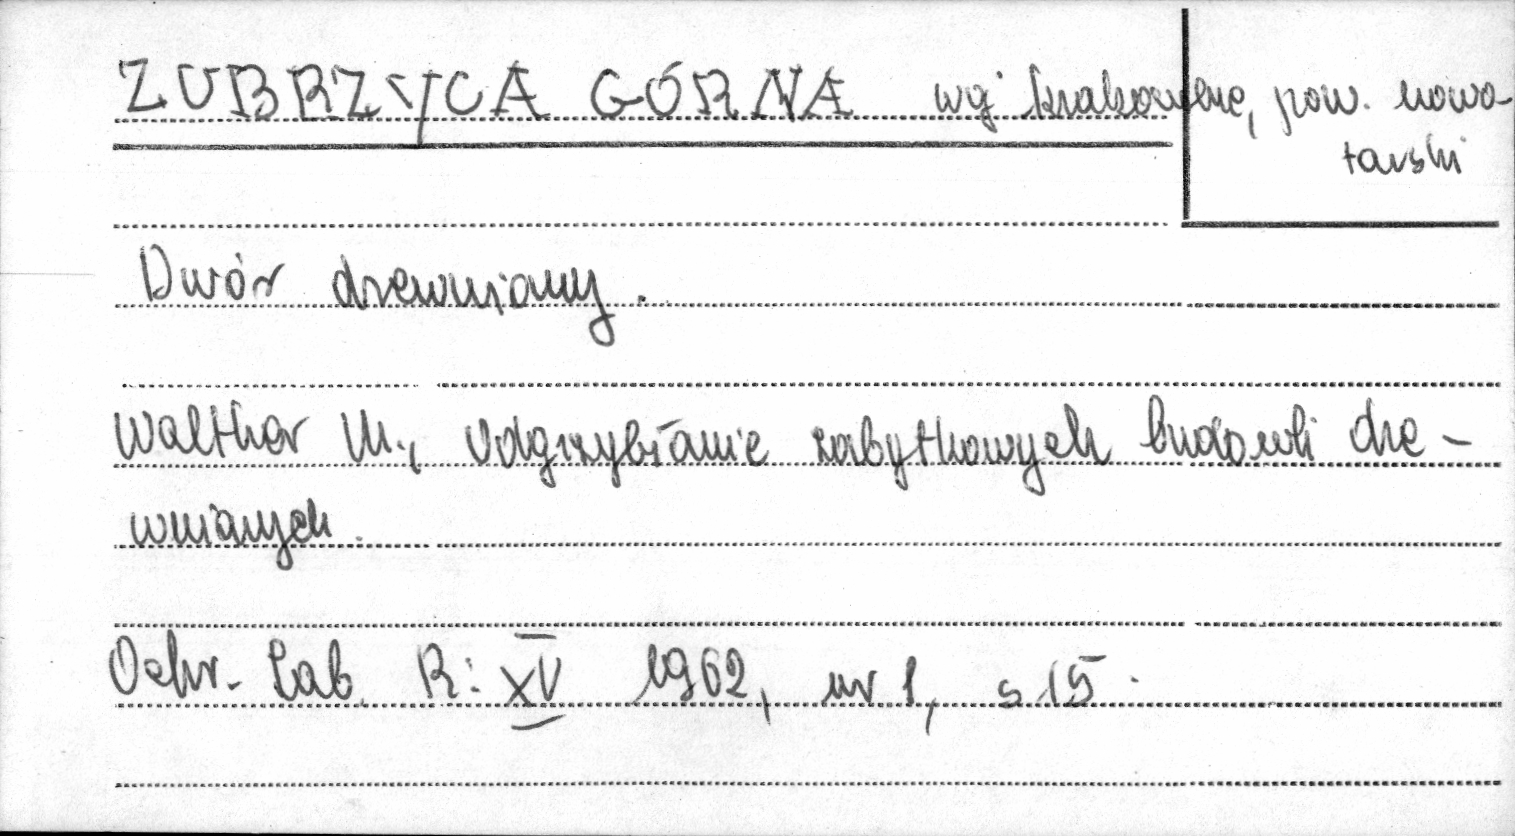 ZUBRZYCA GÓRNA woj krakowskie, pow. nowo-
tarski
Dwór drewniany.
Walther M., Odgrzybianie zabytkowych budowli dre-
wnianych.
Ochr. Zab. R: XV 1962, nr 1, s 15.